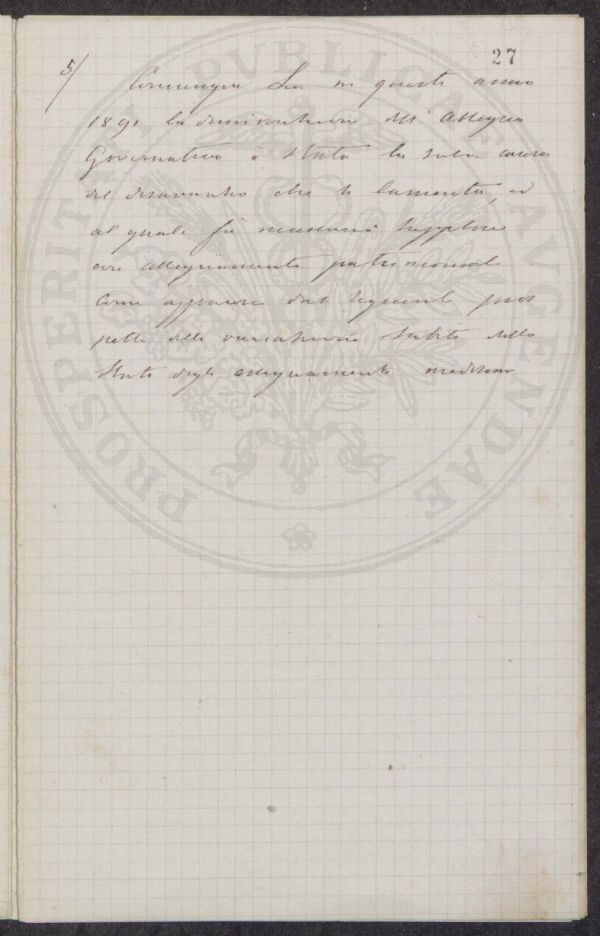 27
5/
Comunque sia in questo anno
1891 la diminuzione dell' assegno
Governativo è stata la sola causa
del disavanzo che si lamenta, ed
al quale fu necessario supplire
con assegnamenti patrimoniali
come apparisce dal seguente pros
petto delle variazioni subite dallo
stato degli assegnamenti medesimi
PROSPERITATI PVBLICAE AVGENDAE